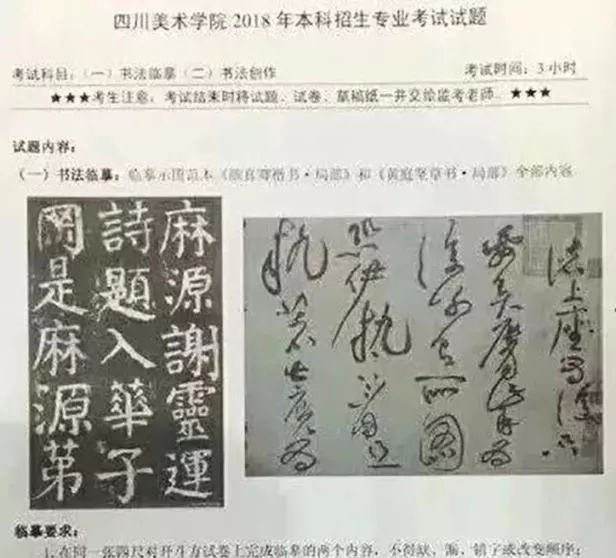 四川美术学院 2018 年本科招生专业考试试题
考试科目：（一）书法临摹（二）书法创作 考试时间：3 小时
★★★考生注意：考试结束时将试题、试卷、草稿纸一并交给监考老师。★★★
试题内容：
（一）书法临摹：临摹示图范本《颜真卿楷书·局部》和《黄庭坚草书·局部》全部内容
麻源謝靈運
詩題入華子
岡是麻源第
諸上座為復只
復別有所圖
临摹要求：
1. 在同一张四尺对开斗方试卷上完成临摹的两个内容，不得缺、漏、错字或改变顺序；